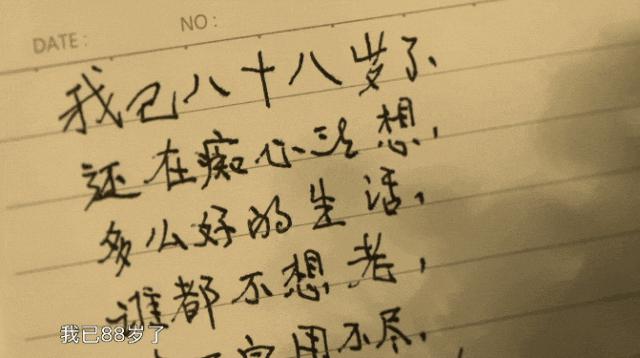 DATE: NO:
我已八十八岁了、
还在痴心妄想，
多么好的生活，
谁都不想老，
用不尽，
我已88岁了